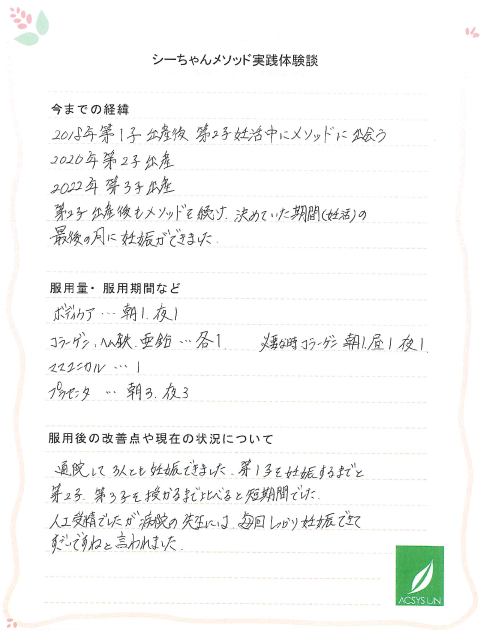 シーちゃんメソッド実践体験談
今までの経緯
2018年第1子出産後 第2子妊活中にメソッドに出会う
2020年第2子出産
2022年第3子出産
第2子出産後もメソッドを続け、決めていた期間(妊活)の
最後の月に妊娠ができました。
服用量・服用期間など
ボディケア … 朝1、夜1
コラーゲン、ヘム鉄、亜鉛 … 各1 必要な時コラーゲン 朝1、昼1 夜1
ママニカル … 1
プラセンタ … 朝3、夜3
服用後の改善点や現在の状況について
通院して3人とも妊娠できました。第1子を妊娠するまでと
第2子、第3子を授かるまで比べると短期間でした。
人工受精でしたが病院の先生には、毎回しっかり妊娠できて
すごいですねと言われました。
ACSYSUN